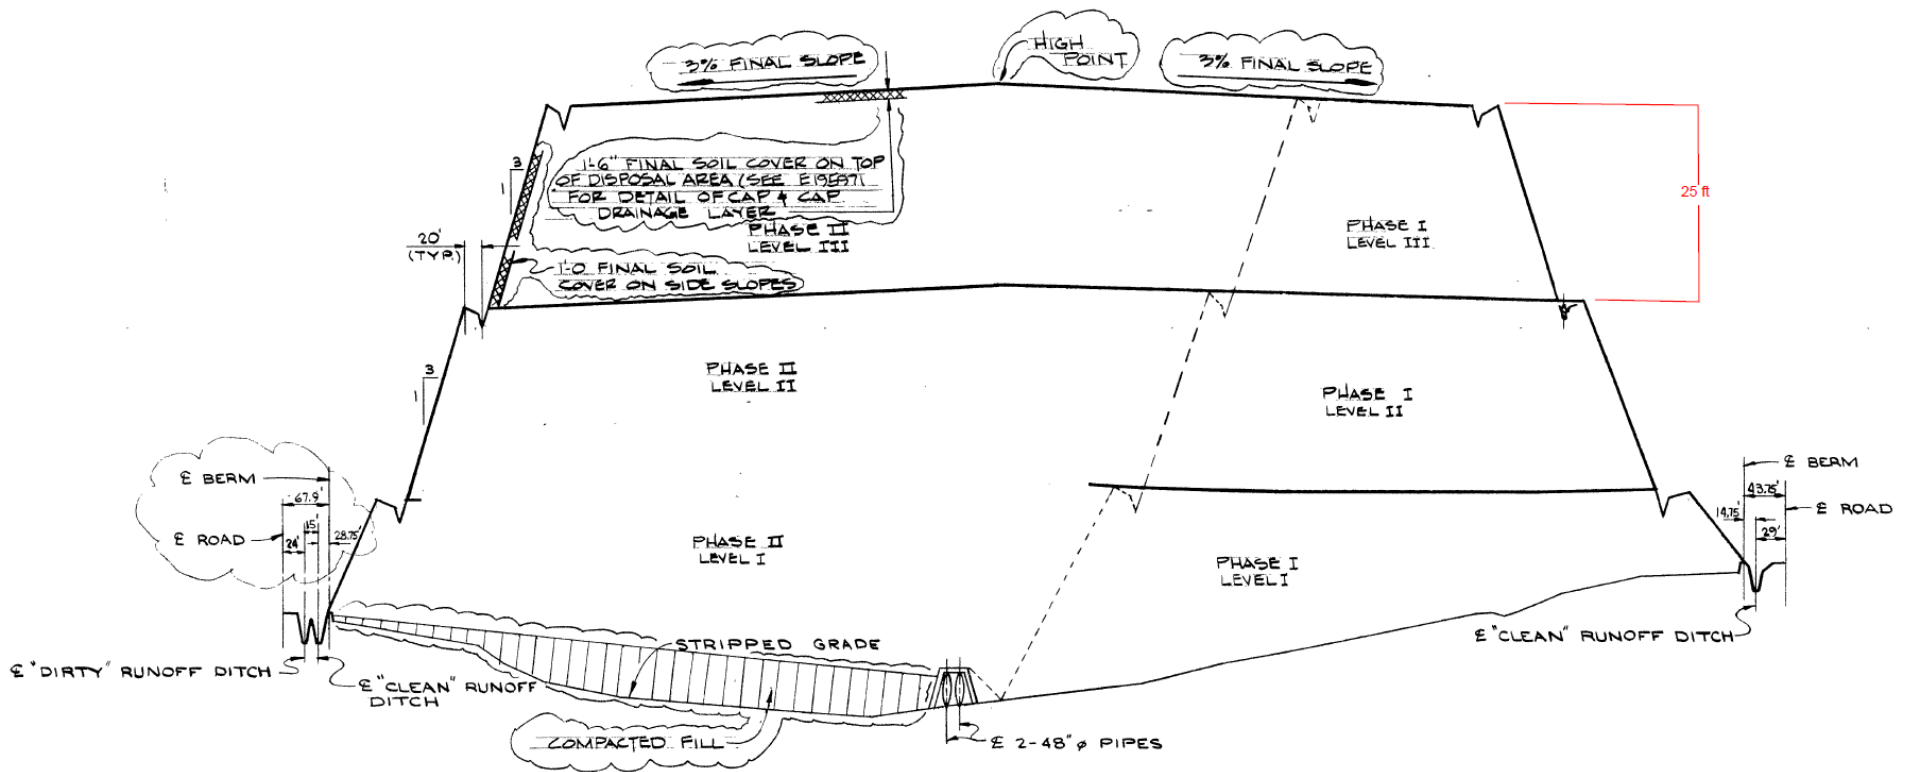 3% FINAL SLOPE
HIGH
POINT
3% FINAL SLOPE
3
1
1'-6" FINAL SOIL COVER ON TOP
OF DISPOSAL AREA (SEE E19E971
FOR DETAIL OF CAP & CAP
DRAINAGE LAYER
25 ft
PHASE II
LEVEL III
PHASE I
LEVEL III
20'
(TYP.)
1'-0 FINAL SOIL
COVER ON SIDE SLOPES
3
1
PHASE II
LEVEL II
PHASE I
LEVEL II
℄ BERM
67.9'
15'
℄ ROAD
24'
28.75'
℄ BERM
43.75'
14.75'
℄ ROAD
29'
PHASE II
LEVEL I
PHASE I
LEVEL I
STRIPPED GRADE
℄ "DIRTY" RUNOFF DITCH
℄ "CLEAN" RUNOFF
DITCH
℄ "CLEAN" RUNOFF DITCH
COMPACTED FILL
℄ 2-48" ø PIPES